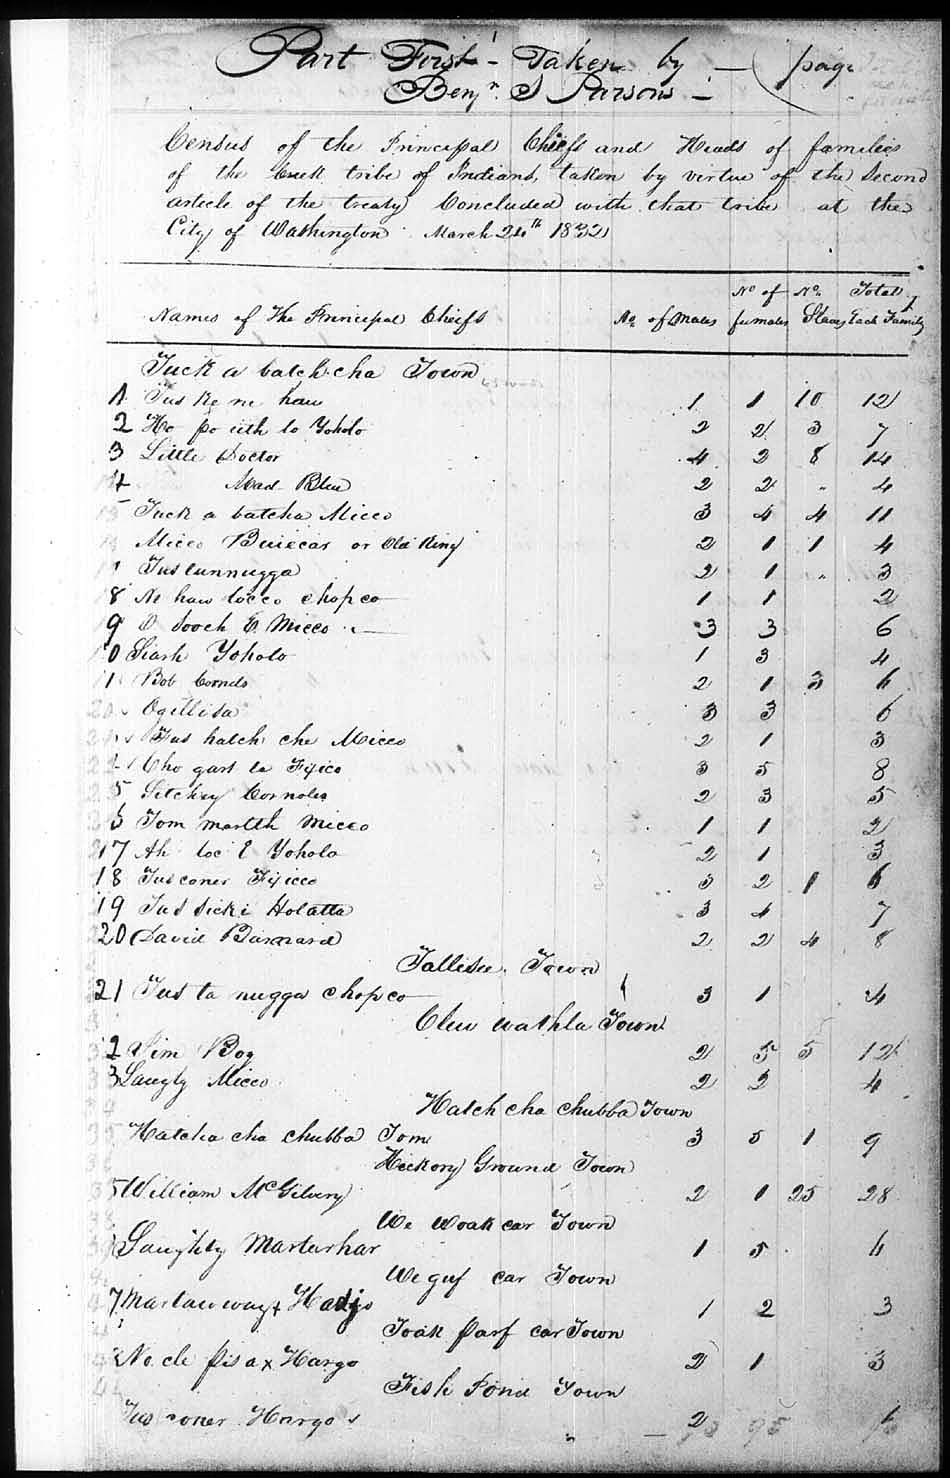 Part First - Taken by — ( page
Benjn. S Parsons —
Census of the Principal Chiefs and Heads of families
of the Creek tribe of Indians, taken by virtue of the Second
article of the treaty Concluded with that tribe at the
City of Washington March 24th 1832
No of No. Total
Names of the Principal Chiefs No. of Males females Slaves Each Family
Tuck a batch cha Town
1 Tus ke ne haw 1 1 10 12
2 Ho po ith lo Yoholo 2 2 3 7
3 Little Doctor 4 2 8 14
4 Mad Blue 2 2 " 4
5 Tuck a batcha Micco 3 4 4 11
Micco or Old King 2 1 1 4
Tustunnugga 2 1 " 3
8 N haw locco chopco 1 1 2
9 Micco 3 3 6
10 Siash Yoholo 1 3 4
11 Bob Cornels 2 1 3 6
Ogillisa 3 3 6
Tus hatch che Micco 2 1 3
Cho gart le Fixico 3 5 8
5 Sitchey Cornoles 2 3 5
Tom marth Micco 1 1 2
17 Ah loc E Yoholo 2 1 3
18 Tusconer Fixicco 3 2 1 6
19 Tus sicki Holatta 3 4 7
20 David Barnard 2 2 4 8
Tallisee Town
21 Tus ta nugga Chopco 3 1 4
Clew wathla Town
2 Jim Boy 2 5 5 12
3 Laugty Micco 2 2 4
Hatch cha chubba Town
Hatcha cha chubba Tom 3 5 1 9
Hickory Ground Town
5 William McGilvery 2 1 25 28
We woak car Town
Laughty Martarhar 1 5 6
We guf car Town
7 Hadjo 1 2 3
Toak parf car Town
No cle pisa x Hargo 2 1 3
Fish Pond Town
Tusconer Hargo 2